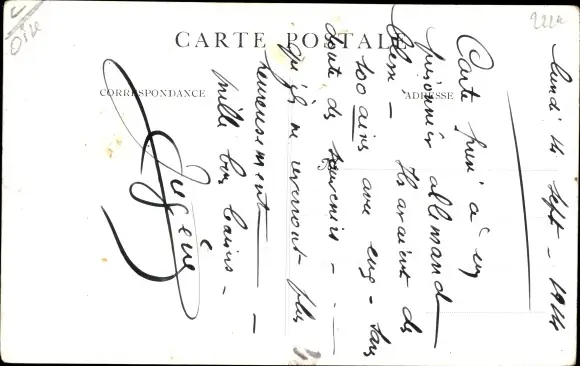 Oise
222a
CARTE POSTALE
CORRESPONDANCE
ADRESSE
lundi 14 sept - 1914
Carte pris à un
prisonnier allemand
blessé - Ils avaient des
100aines avec eux - sans
doute des souvenirs -
qu'ils ne reverront plus
heureusement -
mille bons baisers -
Eugène